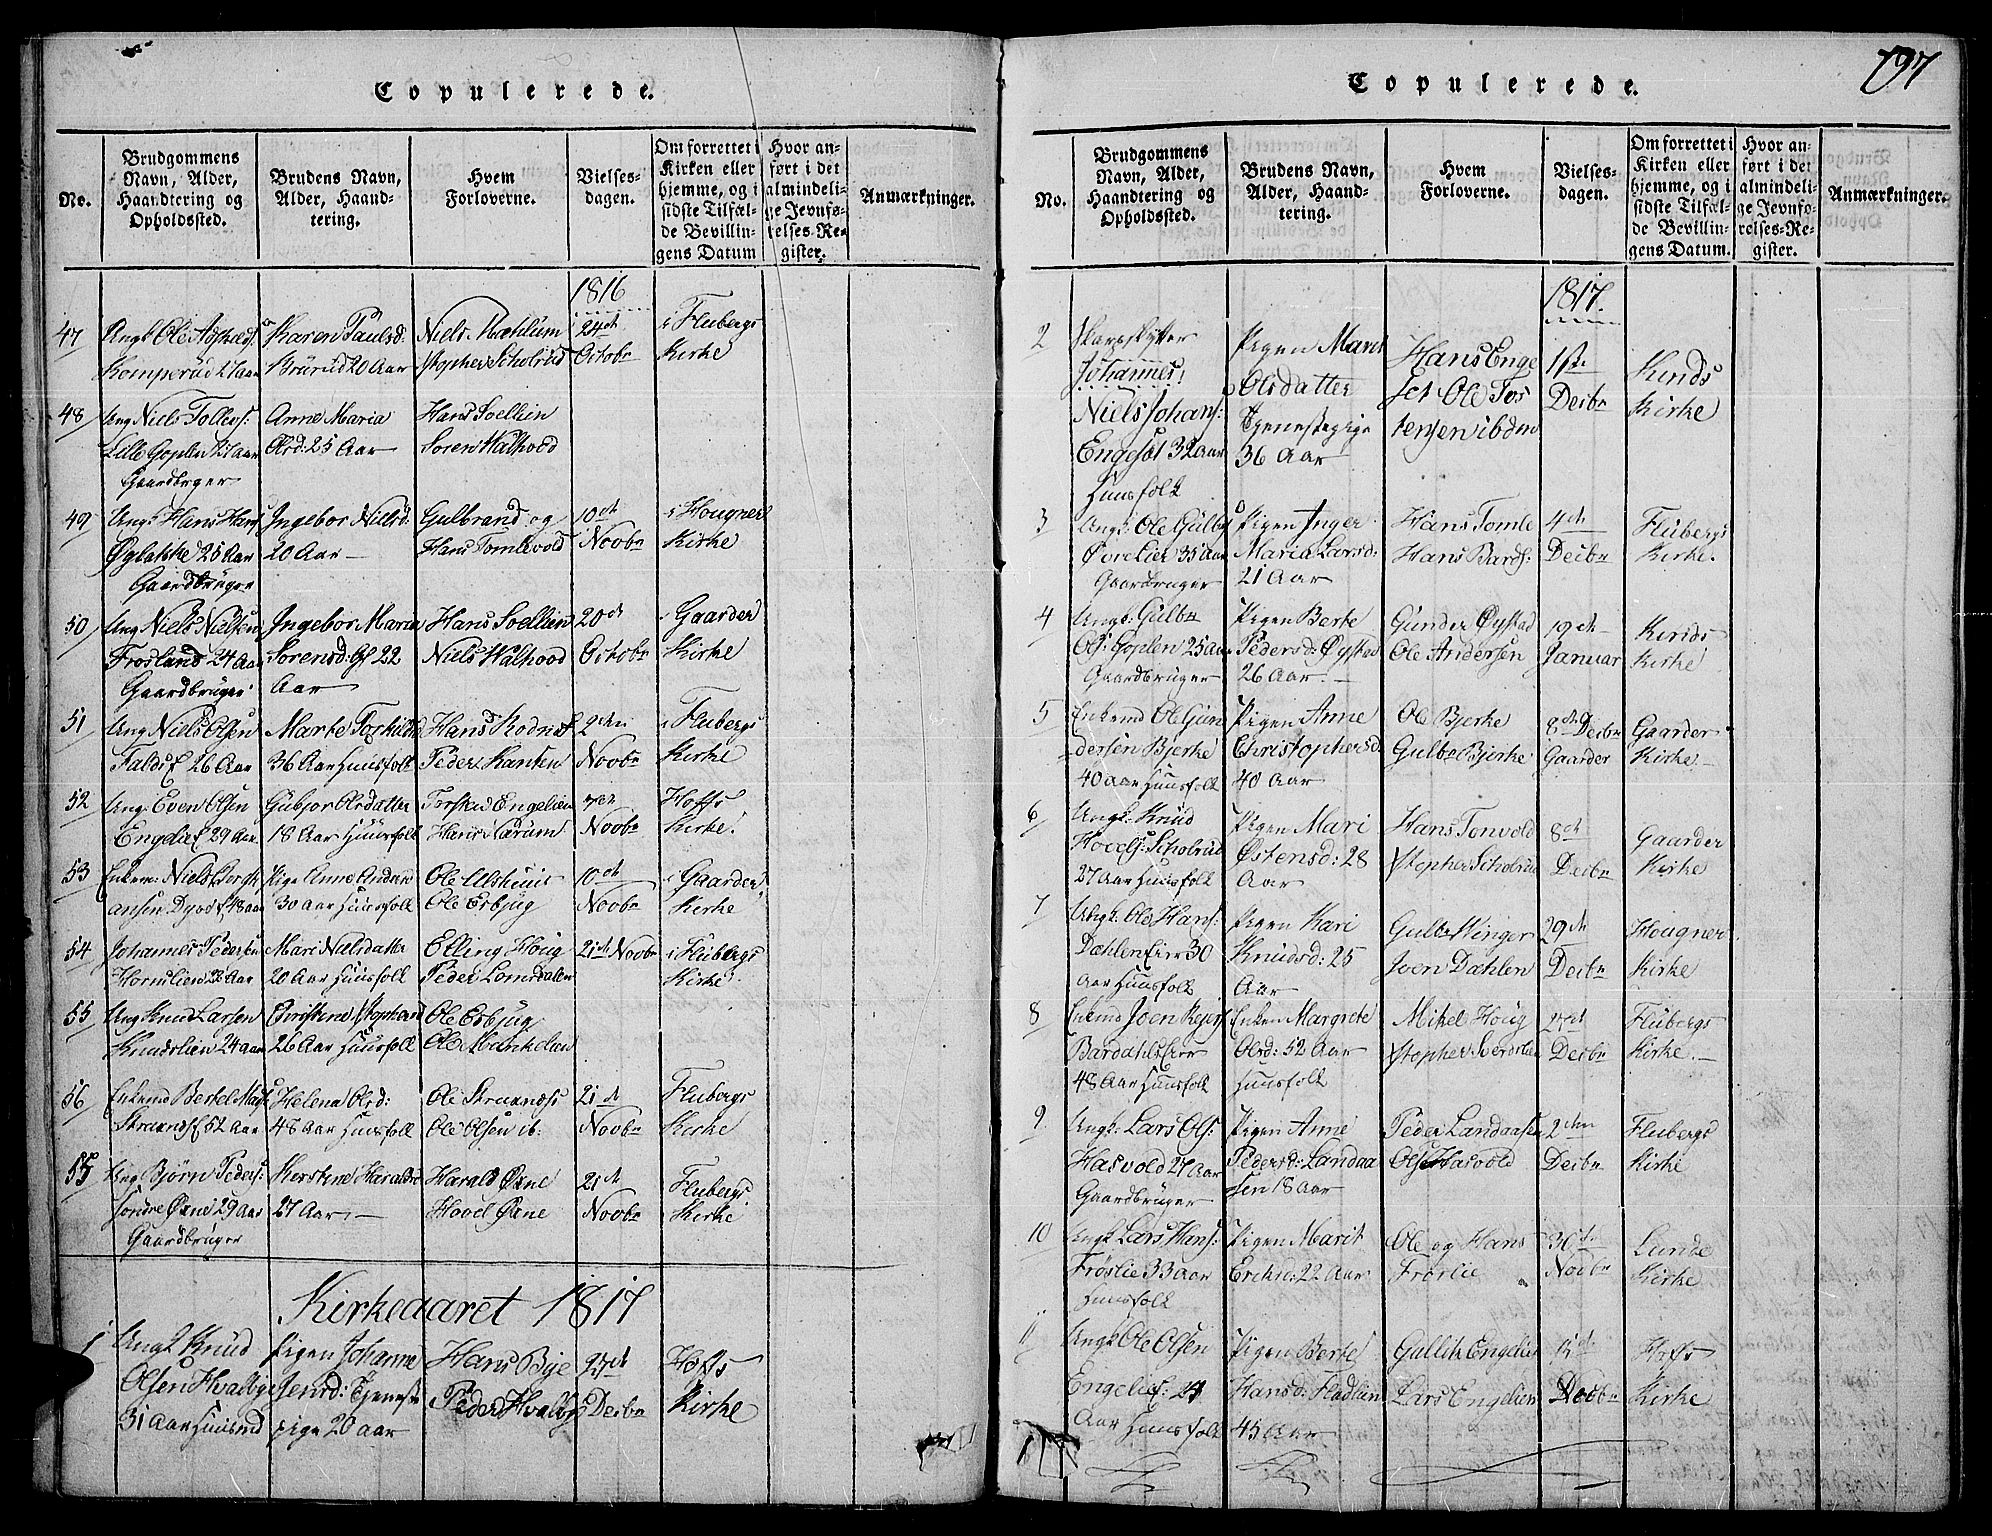 Copulerede.
No.
Brudgommens Navn, Alder, Haandtering og Opholdssted.
Brudens Navn, Alder, Haandtering.
Hvem Forloverne.
Vielsesdagen.
Om forrettet i Kirken eller hjemme, og i sidste Tilfælde Bevillingens Datum
Hvor anført i det almindelige Jevnførelses-Register.
Anmærkninger.
1816
47 Ungk Ole
Komperud 27 Aar
Karen Paulsd:
Brürud 20 Aar
Niels Mæhlum
Stopher Scholrud
24de
Octobr
i Flubergs
Kirke
48 Ung Niels Tollefs:
Lille Goplen 27 Aar
Gaardbrger
Anne Maria
Olsd: 25 Aar
Hans Soellien
Soren Walhovd
49 Ungk Hans Hans
25 Aar
Gaardbrüger
Ingebor Nielsd:
20 Aar —
Gulbrand og
Hans Tomlevold
10de
Novbr
i Hougner
Kirke
50 Ung Niels Nielsen
Frøsland 24 Aar
Gaardbrüger
Ingebor Maria
Sorensd: 22
Aar
Hans Soellien
Niels Walhood
20de
Octobr
i Gaarder
Kirke
51 Ung Niels Olsen
26 Aar
Marte Torkildsd
36 Aar Huusfolk
Hans
Peder
2den
Novbr
i Flubergs
Kirke
52 Ung: Even Olsen
Engelie 29 Aar
Gubjor Olsdatter
18 Aar Huusfolk
Torstad Engelien
Hans Nærum
7de
Novbr
Hoffs
Kirke.
53 Enkem: Niels
48 Aar
Pige Anne Anders
30 Aar Huusfolk
Ole
Ole Esbjüg
10de
Novbr
i Gaarder
Kirke
54 Johannes Pedersen
Hornslien 28 Aar
Mari Nielsdatter
20 Aar Huusfolk
Elling Houg
Peder Lomsdalen
21de Novbr
i Flubergs
Kirke
55 Ung Knud Larsen
Knudslien 24 Aar
26 Aar Huusfolk
Ole Esbjüg
Ole
56 Enkemd Bertel
52 Aar
Helena Olsd:
48 Aar Huusfolk
Ole
Ole Olsen ib.
21de
Novbr
Flubergs
Kirke
55 Ung Bjørn Peders:
Søndre Øxne 29 Aar
Gaardbrüger
Kerstene Haralds
27 Aar. —
Harald Øxne
Hovel Øxne
21de
Novbr
Flubergs
Kirke
Kirkeaaret 1817
1 Ungk Knud
Olsen Hvalbye
31 Aar Huusmd
Pigen Johanne
Jensd: Tjeneste
pige 20 Aar
Hans Bye
Peder Hvalby
27de
Decbr
Hoffs
Kirke
797
Copulerede.
No.
Brudgommens Navn, Alder, Haandtering og Opholdssted.
Brudens Navn, Alder, Haandtering.
Hvem Forloverne.
Vielsesdagen.
Om forrettet i Kirken eller hjemme, og i sidste Tilfælde Bevillingens Datum.
Hvor anført i det almindelige Jevnførelses-Register.
Anmærkninger.
1817
2 Skarpskytter
Johannes
Niels Johans:
Engesæt 32 Aar
Huusfolk
Pigen Marit
Olsdatter
Tjenestepige
36 Aar
Hans Enge
set Ole Tos
tensen ibdm
1ste
Decbr
Kinds
Kirke
3 Ungk: Ole Gulb
35 Aar
Gaardbruger
Pigen Inger
Maria Larsd:
21 Aar
Hans Tomle
Hans Bards:
4de
Decbr
Flubergs
Kirke.
4 Ungk: Gulbr
Ols: Goplen 25 Aar
Gaardbrüger
Pigen Berte
Pedersd: Øystad
26 Aar. —
Gunder Øystad
Ole Andersen
19de
Januar
Kinds
Kirke
5 Enkemd Ole Gun
dersen Bjerke
40 Aar Huusfolk
Pigen Anne
Christophersd:
40 Aar
Ole Bjerke
Gulbr Bjerke
8de Decbr
Gaarder
Gaarder
Kirke —
6 Ungk: Knud
Hovels: Scholrud
27 Aar Huusfolk
Pigen Mari
Østensd: 28
Aar
Hans Tonvold
Stopher Scholrud
8de
Decbr
Gaarder
Kirke
7 Ungk: Ole Hans:
Dæhlen Eier 30
Aar Huusfolk
Pigen Kari
Knudsd: 25
Aar
Gulbr Winger
Joen Dæhlen
29de
Decbr
Hougner
Kirke
8 Enkemd Joen
48 Aar Huusfolk
Enken Margrete
Olsd: 52 Aar
Huusfolk
Mikel Houg
Stopher
27de
Decbr
Flubergs
Kirke. —
9 Ungk: Lars Ols:
Hasvold 27 Aar
Gaardbrüger
Pigen Anne
Pedersd: Landaa
sen 18 Aar
Peder Landaasen
Ole Hasvold
2den
Decbr
Flubergs
Kirke
10 Ungk Lars Hans:
Frøslie 33 Aar
Huusfolk
Pigen Marit
Ericsd: 22 Aar
Ole og Hans
Frøslie
30te
Novbr
Lunde
Kirke
11 Ungk Ole Olsen
Engelie: 27
Aar Huusfolk
Pigen Berte
Hansd: Fladlien
45 Aar
Gullik Engelien
Lars Engelien
15de
Novbr
Hoffs
Kirke